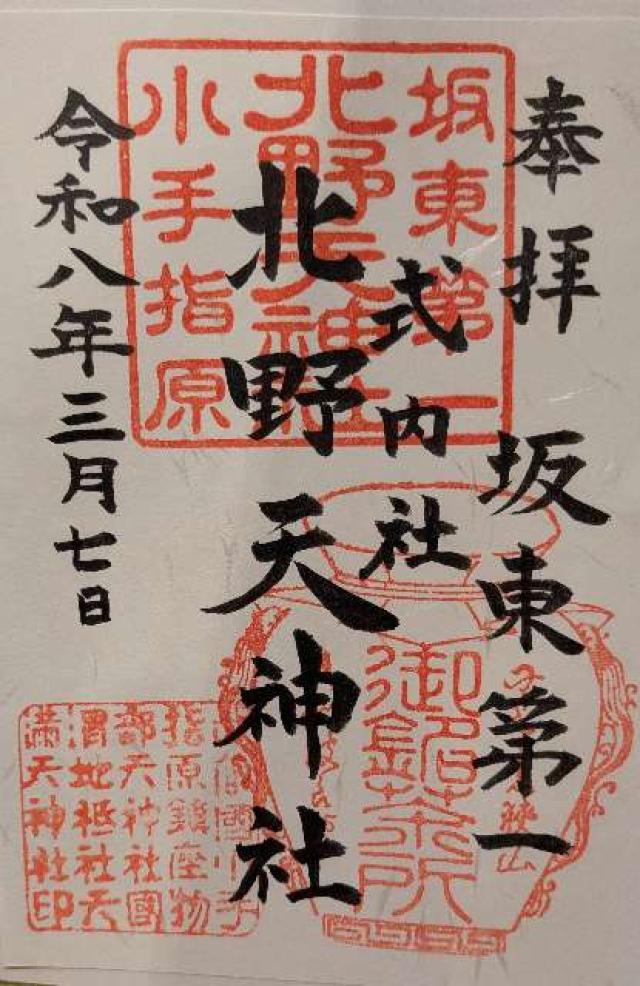 奉拝 坂東第一
式内社
北野天神社
令和八年三月七日
坂東第一
北野天神社
小手指原
御銘茶所
指原鎮座物
部天神社國
渭地祇社天
満天神社印